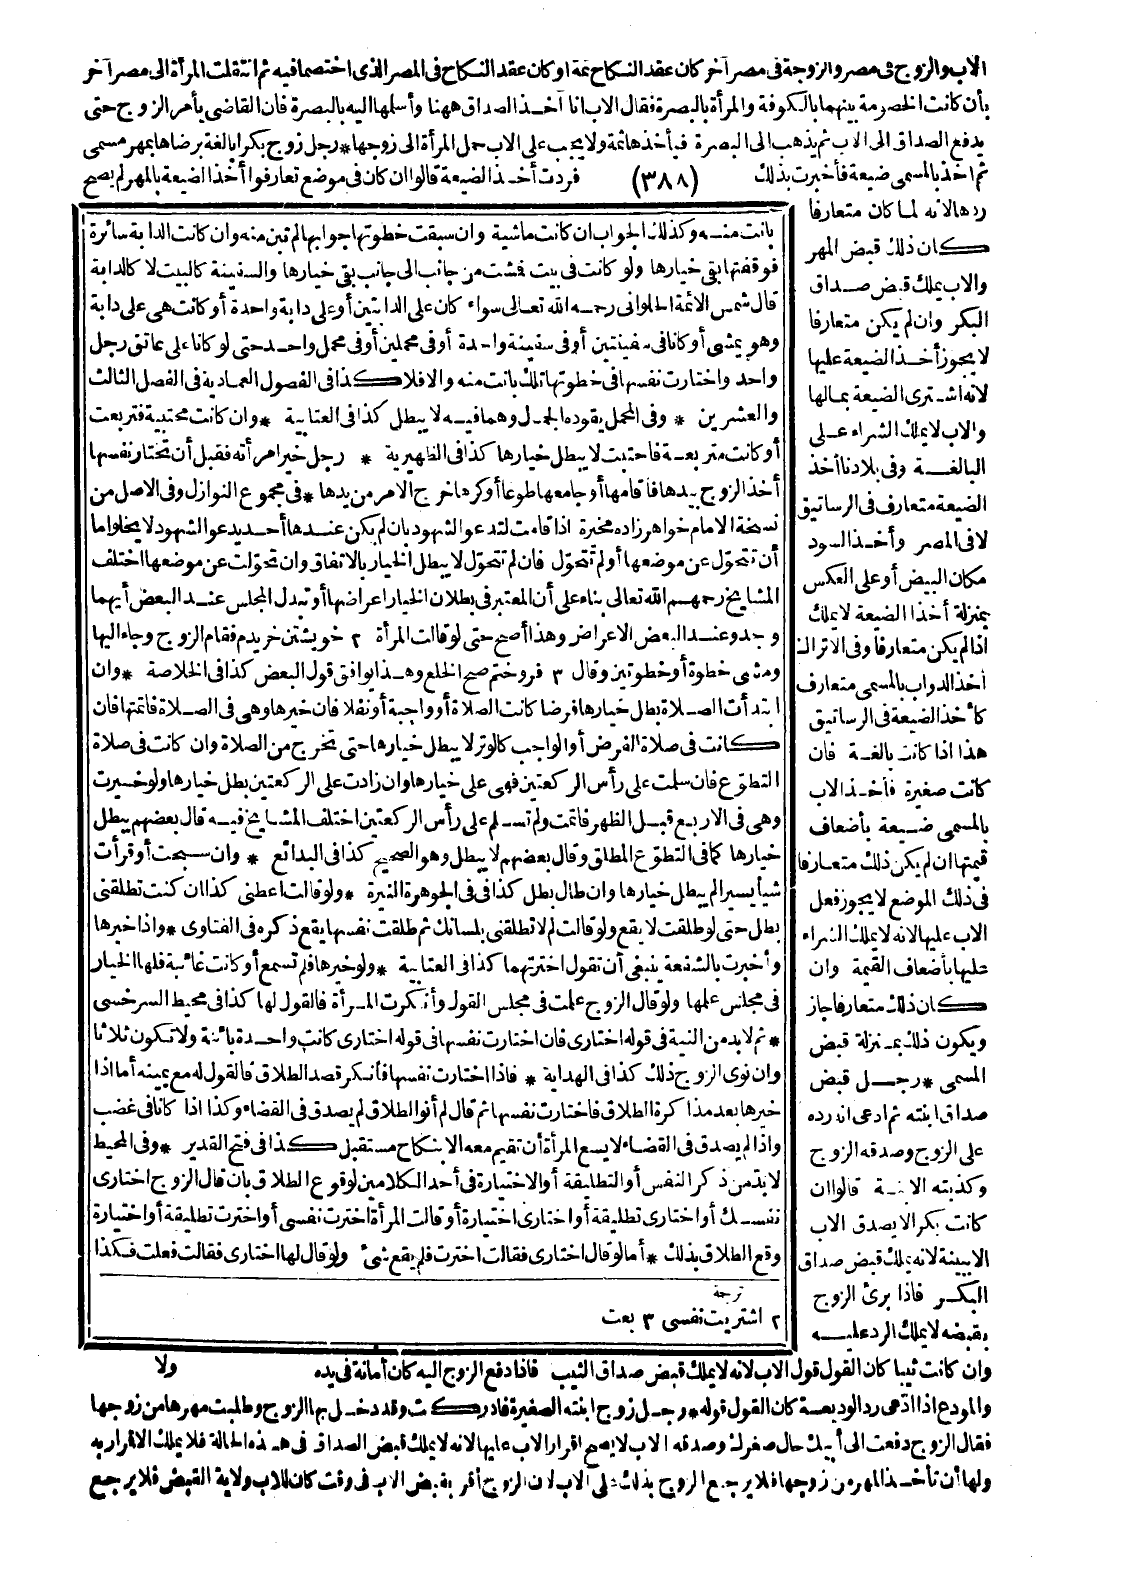 الاب والزوج فى مصر والزوجة فى مصر آخر كان عقد النكاح ثمة او كان عقد النكاح فى المصر الذى اختصما فيه ثم انتقلت المرأة الى مصر آخر
بأن كانت الخصومة بينهما بالكوفة والمرأة بالبصرة فقال الاب انا آخذ الصداق ههنا وأسلمها اليه بالبصرة فان القاضى يأمر الزوج حتى
يدفع الصداق الى الاب ثم يذهب الى البصرة فيأخذها ثمة ولا يجب على الاب حمل المرأة الى زوجها * رجل زوج بكرا بالغة برضاها بمهر مسمى
ثم اخذ بالمسمى ضيعة فأخبرت بذلك (٣٨٨) فردت أخذ الضيعة قالوا ان كان فى موضع تعارفوا أخذ الضيعة بالمهر لم يصح
ردها لانه لما كان متعارفا
كان ذلك قبض المهر
والاب يملك قبض صداق
البكر وان لم يكن متعارفا
لا يجوز أخذ الضيعة عليها
لانه اشترى الضيعة بمالها
والاب لا يملك الشراء على
البالغة وفى بلادنا أخذ
الضيعة متعارف فى الرساتيق
لا فى المصر وأخذ السود
مكان البيض أو على العكس
بمنزلة أخذ الضيعة لا يملك
اذا لم يكن متعارفا وفى الاتراك
أخذ الدواب بالمسمى متعارف
كأخذ الضيعة فى الرساتيق
هذا اذا كانت بالغة فان
كانت صغيرة فأخذ الاب
بالمسمى ضيعة بأضعاف
قيمتها ان لم يكن ذلك متعارفا
فى ذلك الموضع لا يجوز فعل
الاب عليها لانه لا يملك الشراء
عليها بأضعاف القيمة وان
كان ذلك متعارفا جاز
ويكون ذلك بمنزلة قبض
المسمى * رجل قبض
صداق ابنته ثم ادعى انه رده
على الزوج وصدقه الزوج
وكذبته الابنة قالوا ان
كانت بكرا لا يصدق الاب
الا ببينة لانه يملك قبض صداق
البكر فاذا برئ الزوج
بقبضه لا يملك الرد عليه
بانت منه وكذلك الجواب ان كانت ماشية وان سبقت خطوتها جوابها لم تبن منه وان كانت الدابة سائرة
فوقفتها بقى خيارها ولو كانت فى بيت فمشت من جانب الى جانب بقى خيارها والسفينة كالبيت لا كالدابة
قال شمس الائمة الحلوانى رحمه الله تعالى سواء كان على الدابتين أو على دابة واحدة أو كانت هى على دابة
وهو يمشى أو كانا فى سفينتين أو فى سفينة واحدة أو فى محملين أو فى محمل واحد حتى لو كانا على عاتق رجل
واحد واختارت نفسها فى خطوتها تلك بانت منه والا فلا كذا فى الفصول العمادية فى الفصل الثالث
والعشرين * وفى المحمل يقوده الجمال وهما فيه لا يبطل كذا فى العتابية * وان كانت محتبية فتربعت
أو كانت متربعة فاحتبت لا يبطل خيارها كذا فى الظهيرية * رجل خير امرأته فقبل أن تختار نفسها
أخذ الزوج بيدها فأقامها أو جامعها طوعا أو كرها خرج الامر من يدها * فى مجموع النوازل وفى الاصل من
نسخة الامام خواهر زاده مخيرة اذا قامت لتدعو الشهود بان لم يكن عندها أحد يدعو الشهود لا يخلو اما
أن تتحول عن موضعها أو لم تتحول فان لم تتحول لا يبطل الخيار بالاتفاق وان تحولت عن موضعها اختلف
المشايخ رحمهم الله تعالى بناء على أن المعتبر فى بطلان الخيار اعراضها أو تبدل المجلس عند البعض أيهما
وجد وعند البعض الاعراض وهذا أصح حتى لو قالت المرأة ٢ خويشتن خريدم فقام الزوج وجاء اليها
ومشى خطوة أو خطوتين وقال ٣ فروختم صح الخلع وهذا يوافق قول البعض كذا فى الخلاصة * وان
ابتدأت الصلاة بطل خيارها فرضا كانت الصلاة أو واجبة أو نفلا فان خيرها وهى فى الصلاة فاتمتها فان
كانت فى صلاة الفرض أو الواجب كالوتر لا يبطل خيارها حتى تخرج من الصلاة وان كانت فى صلاة
التطوع فان سلمت على رأس الركعتين فهى على خيارها وان زادت على الركعتين بطل خيارها ولو خيرت
وهى فى الاربع قبل الظهر فاتمت ولم تسلم على رأس الركعتين اختلف المشايخ فيه قال بعضهم يبطل
خيارها كما فى التطوع المطلق وقال بعضهم لا يبطل وهو الصحيح كذا فى البدائع * وان سبحت أو قرأت
شيأ يسيرا لم يبطل خيارها وان طال بطل كذا فى الجوهرة النيرة * ولو قالت اعطنى كذا ان كنت تطلقنى
بطل حتى لو طلقت لا يقع ولو قالت لم لا تطلقنى بلسانك ثم طلقت نفسها يقع ذكره فى الفتاوى * واذا خيرها
وأخبرت بالشفعة ينبغى أن تقول اخترتهما كذا فى العتابية * ولو خيرها فلم تسمع أو كانت غائبة فلها الخيار
فى مجلس علمها ولو قال الزوج علمت فى مجلس القول وأنكرت المرأة فالقول لها كذا فى محيط السرخسى
* ثم لا بد من النية فى قوله اختارى فان اختارت نفسها فى قوله اختارى كانت واحدة بائنة ولا تكون ثلاثا
وان نوى الزوج ذلك كذا فى الهداية * فاذا اختارت نفسها فأنكر قصد الطلاق فالقول له مع يمينه أما اذا
خيرها بعد مذاكرة الطلاق فاختارت نفسها ثم قال لم أنو الطلاق لم يصدق فى القضاء وكذا اذا كانا فى غضب
واذا لم يصدق فى القضاء لا يسع المرأة أن تقيم معه الا بنكاح مستقبل كذا فى فتح القدير * وفى المحيط
لا بد من ذكر النفس أو التطليقة أو الاختيارة فى أحد الكلامين لوقوع الطلاق بان قال الزوج اختارى
نفسك أو اختارى تطليقة أو اختارى اختيارة أو قالت المرأة اخترت نفسى أو اخترت تطليقة أو اختيارة
وقع الطلاق بذلك * أما لو قال اختارى فقالت اخترت فلم يقع شئ ولو قال لها اختارى فقالت فعلت فكذا
ترجمة
٢ اشتريت نفسى ٣ بعت
وان كانت ثيبا كان القول قول الاب لانه لا يملك قبض صداق الثيب فاذا دفع الزوج اليه كان أمانة فى يده ولا
والمودع اذا ادعى رد الوديعة كان القول قوله * رجل زوج ابنته الصغيرة فادركت وقد دخل بها الزوج وطلبت مهرها من زوجها
فقال الزوج دفعت الى أبيك حال صغرك وصدقه الاب لا يصح اقرار الاب عليها لانه لا يملك قبض الصداق فى هذه الحالة فلا يملك الاقرار به
ولها أن تأخذ المهر من زوجها فلا يرجع الزوج بذلك على الاب لان الزوج أقر بقبض الاب فى وقت كان للاب ولاية القبض فلا يرجع